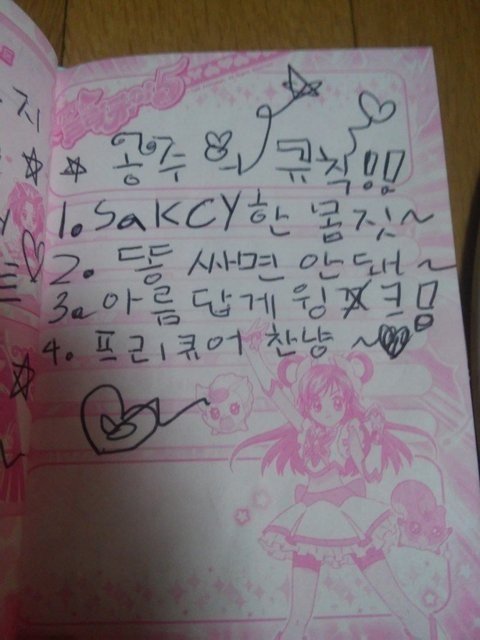 공주의 규칙!!
1. SaKCY한 몸짓~
2. 똥 싸면 안돼~
3. 아름답게 윙크!!
4. 프리큐어 찬냥~♥